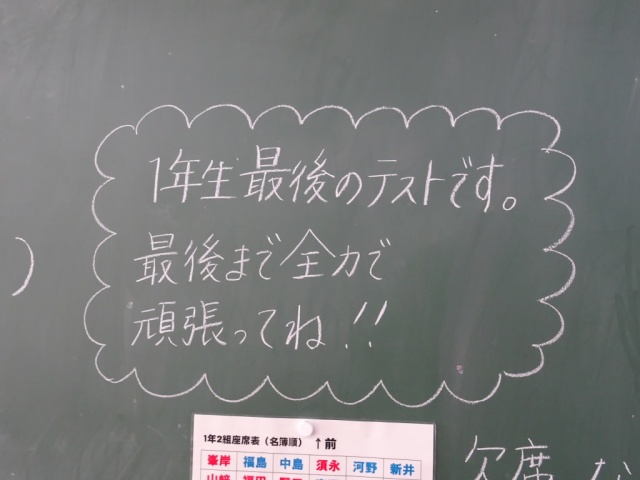 1年生最後のテストです。
最後まで全力で
頑張ってね!!
1年2組座席表(名簿順) ↑前
峯岸 福島 中島 須永 河野 新井
欠席 な